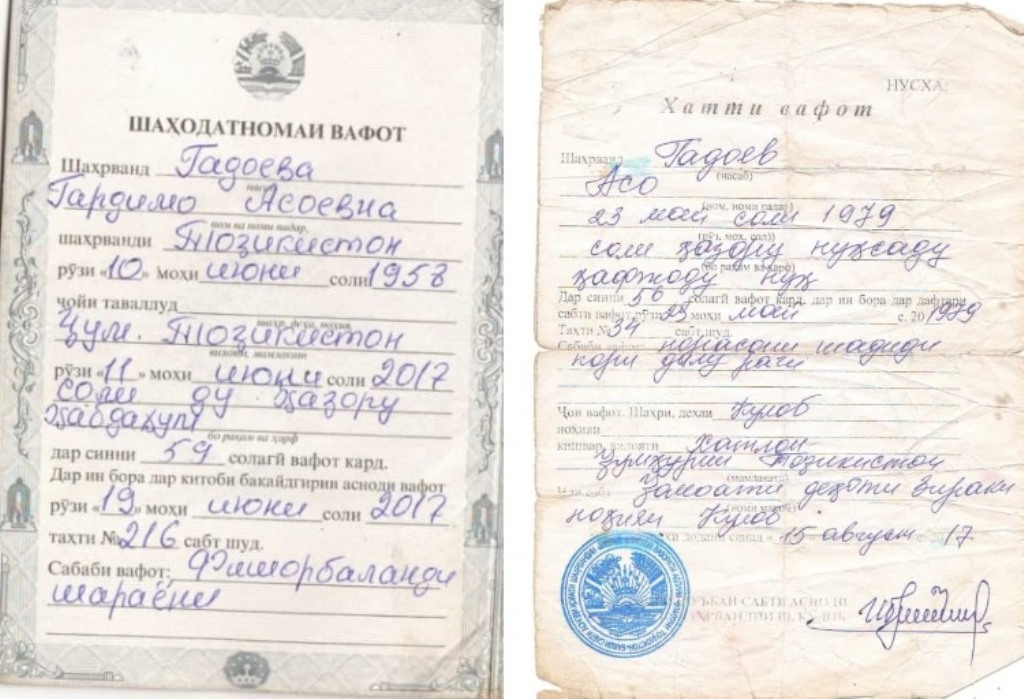 ШАҲОДАТНОМАИ ВАФОТ
Шаҳрванд Гадоева
насаб
Гардимо Асоевна
ном ва номи падар,
шаҳрванди Тоҷикистон
рӯзи «10» моҳи июни соли 1958
ҷойи таваллуд
шаҳр, деҳа, ноҳия
Ҷум. Тоҷикистон
вилоят, мамлакат
рӯзи «11» моҳи июни соли 2017
соли ду ҳазору
ҳабдаҳум
бо рақам ва ҳарф
дар синни 59 солагӣ вафот кард.
Дар ин бора дар китоби бақайдгирии асноди вафот
рӯзи «19» моҳи июни соли 2017
таҳти №216 сабт шуд.
Сабаби вафот: Фишорбаланди
шараёни
НУСХА
Хатти вафот
Шаҳрванд Гадоев
(насаб)
Асо
(ном, номи падар)
23 май соли 1979
(рӯз, моҳ, сол)
соли ҳазору нуҳсаду
бо рақам ва ҳарф)
ҳафтоду нуҳ
Дар синни 56 солагӣ вафот кард, дар ин бора дар дафтари
сабти вафот рӯзи 23 моҳи май с. 201979
Таҳти №34 сабт шуд.
Сабаби норасоии шадиди
кори дилу раги
Ҷои вафот. Шаҳри, деҳаи Кулоб
ноҳияи
кишвар, вилояти Хатлон
Ҷумҳурии Тоҷикистон
(мамлакат)
Ҷамоати деҳоти Зираки
ноҳияи Кулоб
додани санад « 15 август с. 2017
САБТИ АСНОДИ